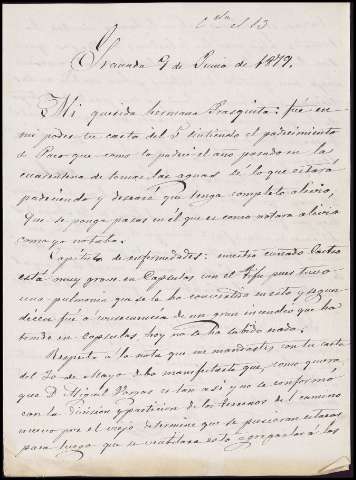 Granada 9 de Junio de 1879.
Mi querida hermana Frasquita: fué en
mi poder tu carta del 5 sintiendo el padecimiento
de Paco que como lo padecí el año pasado en la
de tomar las aguas sé lo que estará
padeciendo y deseare que tenga completo alivio,
Que se ponga paxas en el que es como notara alivio
como yo notaba.
Capitulo de enfermedades: nuestro cuñado Castro
está muy grave en Capsulas con el Tifu pues tuvo
una pulmonia que se le ha convertido en esto y segun
decian fué a consecuencia de un gran incendio que ha
tenido en capsulas, hoy no se ha sabido nada.
Respecto a la nota que me mandastes con tu carta
del 30 de Mayo debo manifestarte que, como quiera
que D. Miguel Vargas es tan así y no se conformó
con la Division y particion de los terrenos del camino
nuevo por el viejo determiné que se pusieran estacas
para luego que se variara esto agregarlas a las